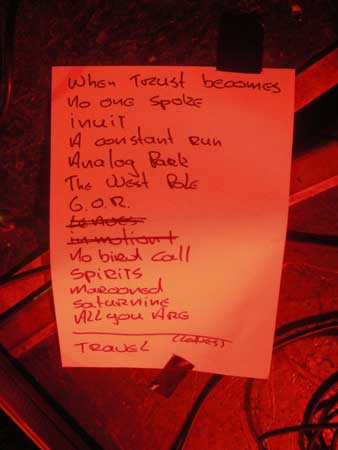 When Trust becomes
No one spoke
inuit
A constant run
Analog Park
The West Pole
G.O.R.
Leaves
in motion 1
No bird call
Spirits
marooned
saturnine
All you Are
Travel